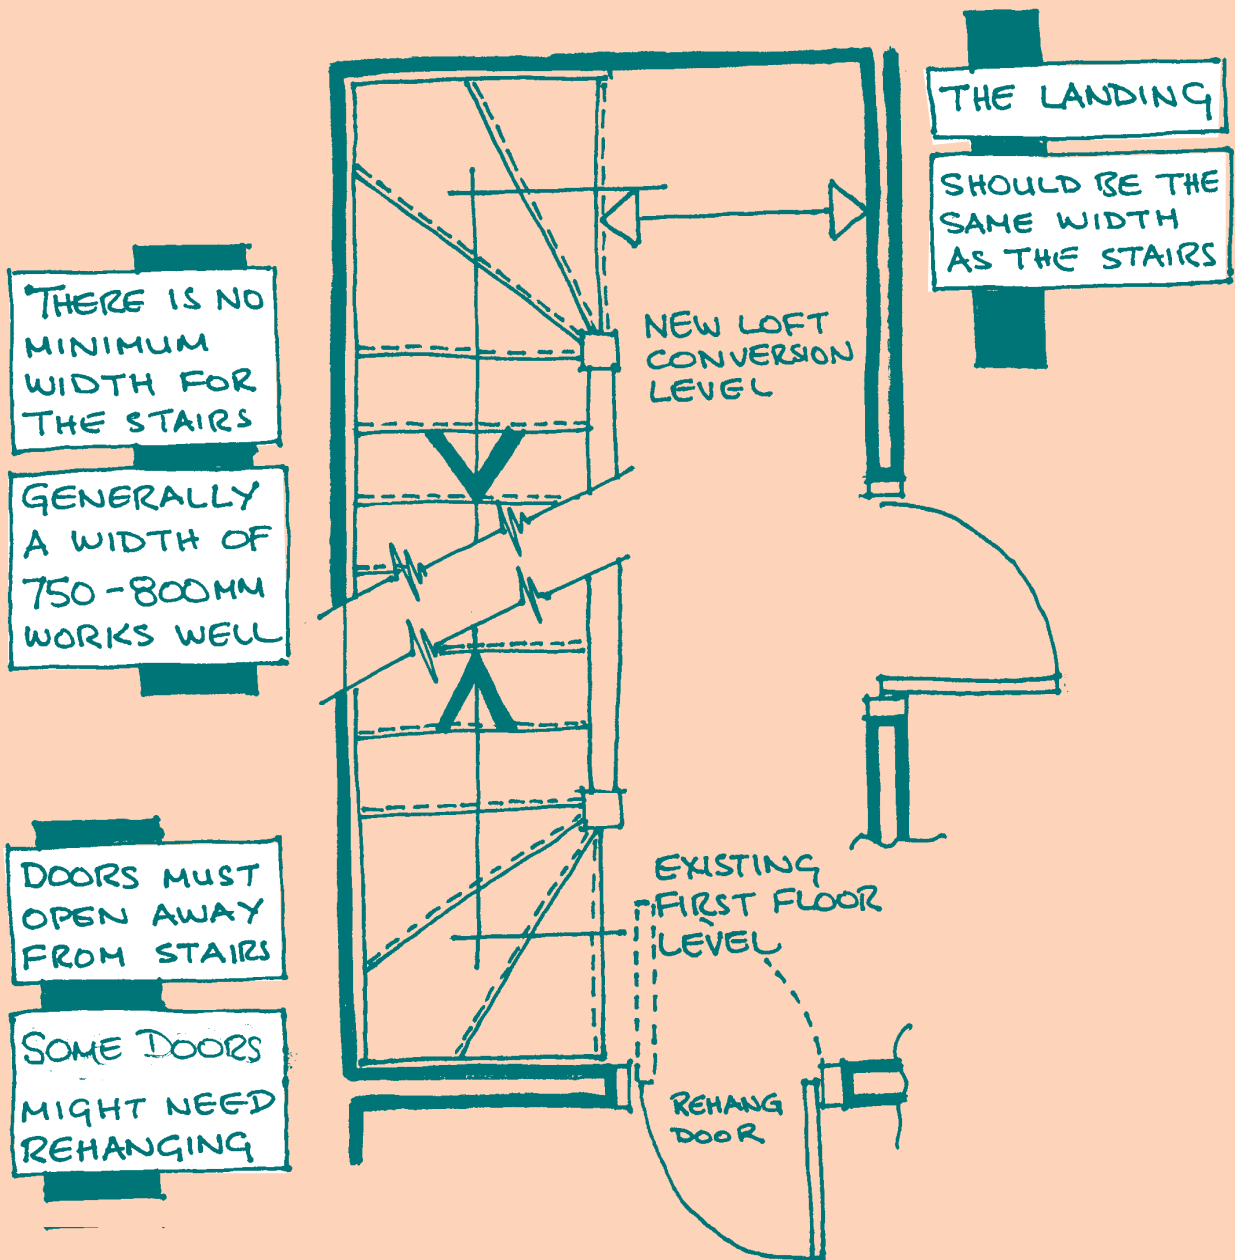 THE LANDING
SHOULD BE THE
SAME WIDTH
AS THE STAIRS
THERE IS NO
MINIMUM
WIDTH FOR
THE STAIRS
GENERALLY
A WIDTH OF
750-800MM
WORKS WELL
NEW LOFT
CONVERSION
LEVEL
DOORS MUST
OPEN AWAY
FROM STAIRS
SOME DOORS
MIGHT NEED
REHANGING
EXISTING
FIRST FLOOR
LEVEL
REHANG
DOOR